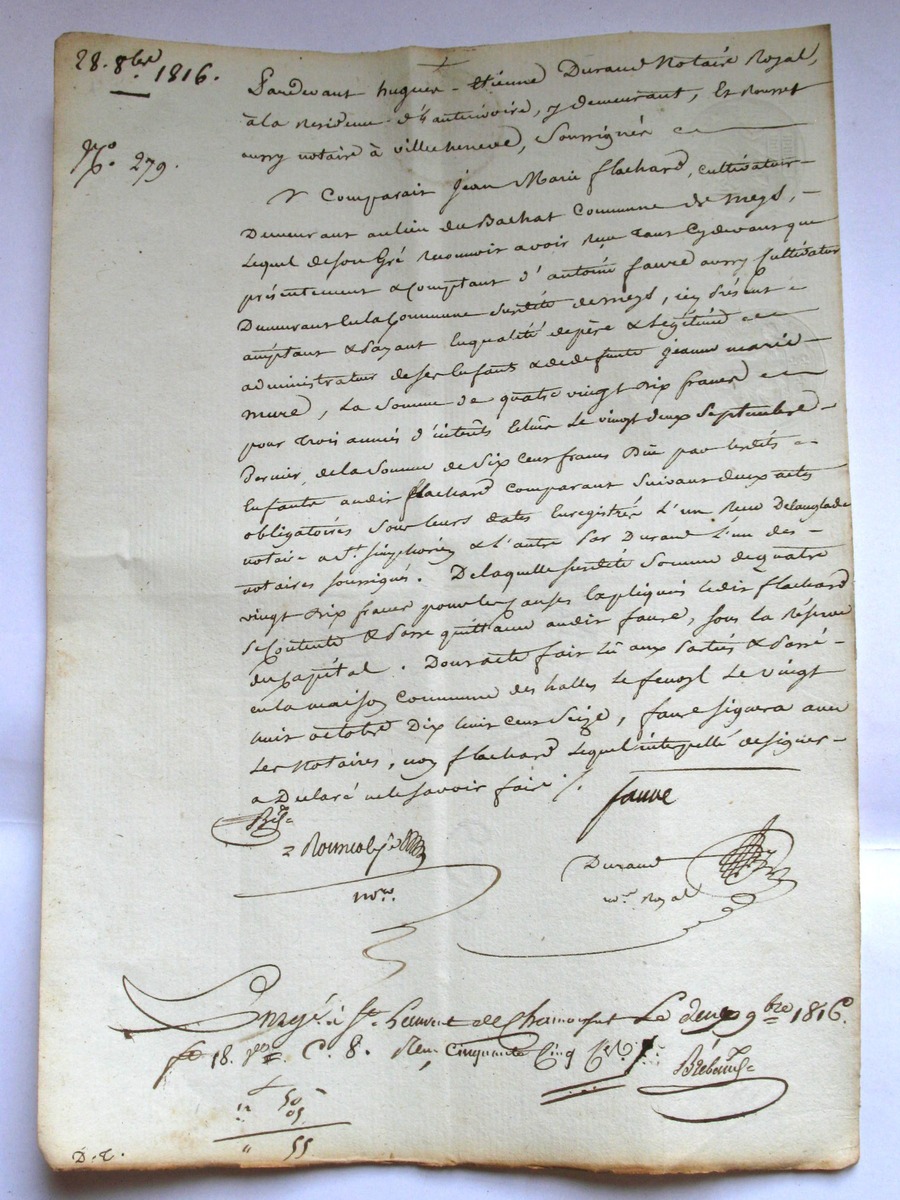 28. 8bre 1816.
No. 279.
Pardevant hugues-étienne Durand Notaire Royal,
à la Résidence d', y demeurant, Et
aussy notaire à villecheneve, Soussignés
Comparait Jean Marie flachard, cultivateur
Demeurant au lieu du Bachat Commune de meys,
Lequel de Son Gré reconnoit avoir Reçu tant Cydevant que
présentement & Comptant d'antoine faure aussy Cultivateur
Demeurant En la Commune Susdite de meys, icy présent
acceptant & payant En qualité de père & Légitime
administrateur de ses Enfants & de defunte jeanne marie
mure, La Somme de quatre vingt Dix francs
pour trois années d'intérêts Echus Le vingt deux Septembre
Dernier, de la Somme de Six Cent francs Due par lesdits
Enfants audit flachard comparant Suivant deux actes
obligatoires Sous leurs dates Enregistrés L'un Reçu Delanglade
notaire a St. Simphorien & L'autre par Durand L'un des
notaires soussignés. De laquelle susdite Somme de quatre
vingt Dix francs pour les Causes Expliquées Ledit flachard
Se Contente & passe quittance audit faure, Sous la Réserve
du Capital. Dont acte fait Lû aux parties & passé
en la maison Commune des halles le fenoyl Le vingt
huit octobre Dix huit Cent Seize, faure Signera avec
Les Notaires, non flachard Lequel interpellé de signer
a Declaré ne le savoir faire.
faure
nore.
Durand
nore. Royal
Enregé. à St. Laurent de Chamousset Le deux 9bre 1816.
fo 18. Vo. C. 8. Reçu Cinquante Cinq Ces.
50
05
55
D.t.